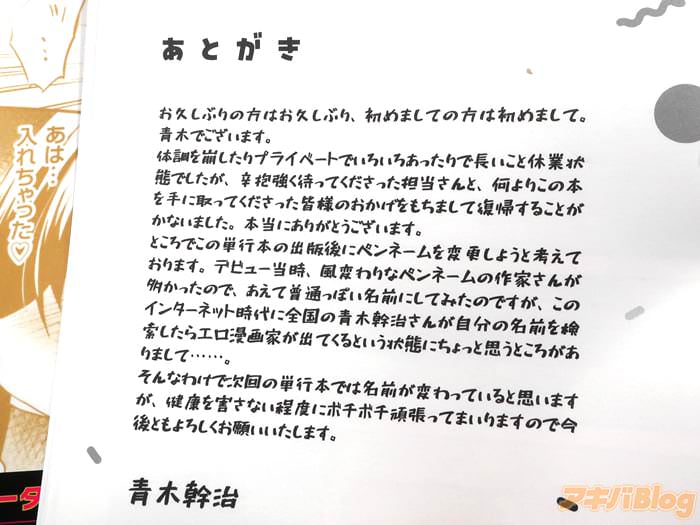 あとがき
お久しぶりの方はお久しぶり、初めましての方は初めまして。
青木でございます。
体調を崩したりプライベートでいろいろあったりで長いこと休業状
態でしたが、辛抱強く待ってくださった担当さんと、何よりこの本
を手に取ってくださった皆様のおかげをもちまして復帰することが
かないました。本当にありがとうございます。
ところでこの単行本の出版後にペンネームを変更しようと考えて
おります。デビュー当時、風変わりなペンネームの作家さんが
多かったので、あえて普通っぽい名前にしてみたのですが、この
インターネット時代に全国の青木幹治さんが自分の名前を検
索したらエロ漫画家が出てくるという状態にちょっと思うところがあ
りまして……。
そんなわけで次回の単行本では名前が変わっていると思います
が、健康を害さない程度にボチボチ頑張ってまいりますので今
後ともよろしくお願いいたします。
青木幹治
あは…
入れちゃった♡
ータ
マキバBlog